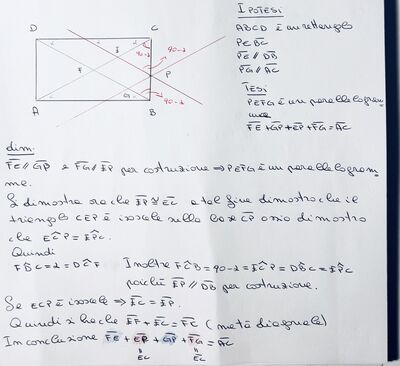 D C IPOTESI
ABCD è un rettangolo
P∈BC
PE // DB
PG // AC
TESI
PEFG è un parallelogram
ma
FE + GP + EP + FG = AC
α α E 90-α 90-α
F P
G 90-α
A B
dim.
FE // GP e FG // EP per costruzione ⇒ PEFG è un parallelogram
ma.
Si dimostra ora che EP ≅ EC a tal fine dimostro che il
triangolo CEP è isoscele sulla base CP ossia dimostro
che EĈP = EP̂C.
Quindi
FD̂C = α = DĈF Inoltre FĈB = 90-α = EĈP = DB̂C = EP̂C
poiché EP // DB per costruzione.
Se ECP è isoscele ⇒ EC = EP.
Quindi si ha che EF + EC = FC (metà diagonale)
In conclusione FE + EP + GP + FG = AC
EC EC